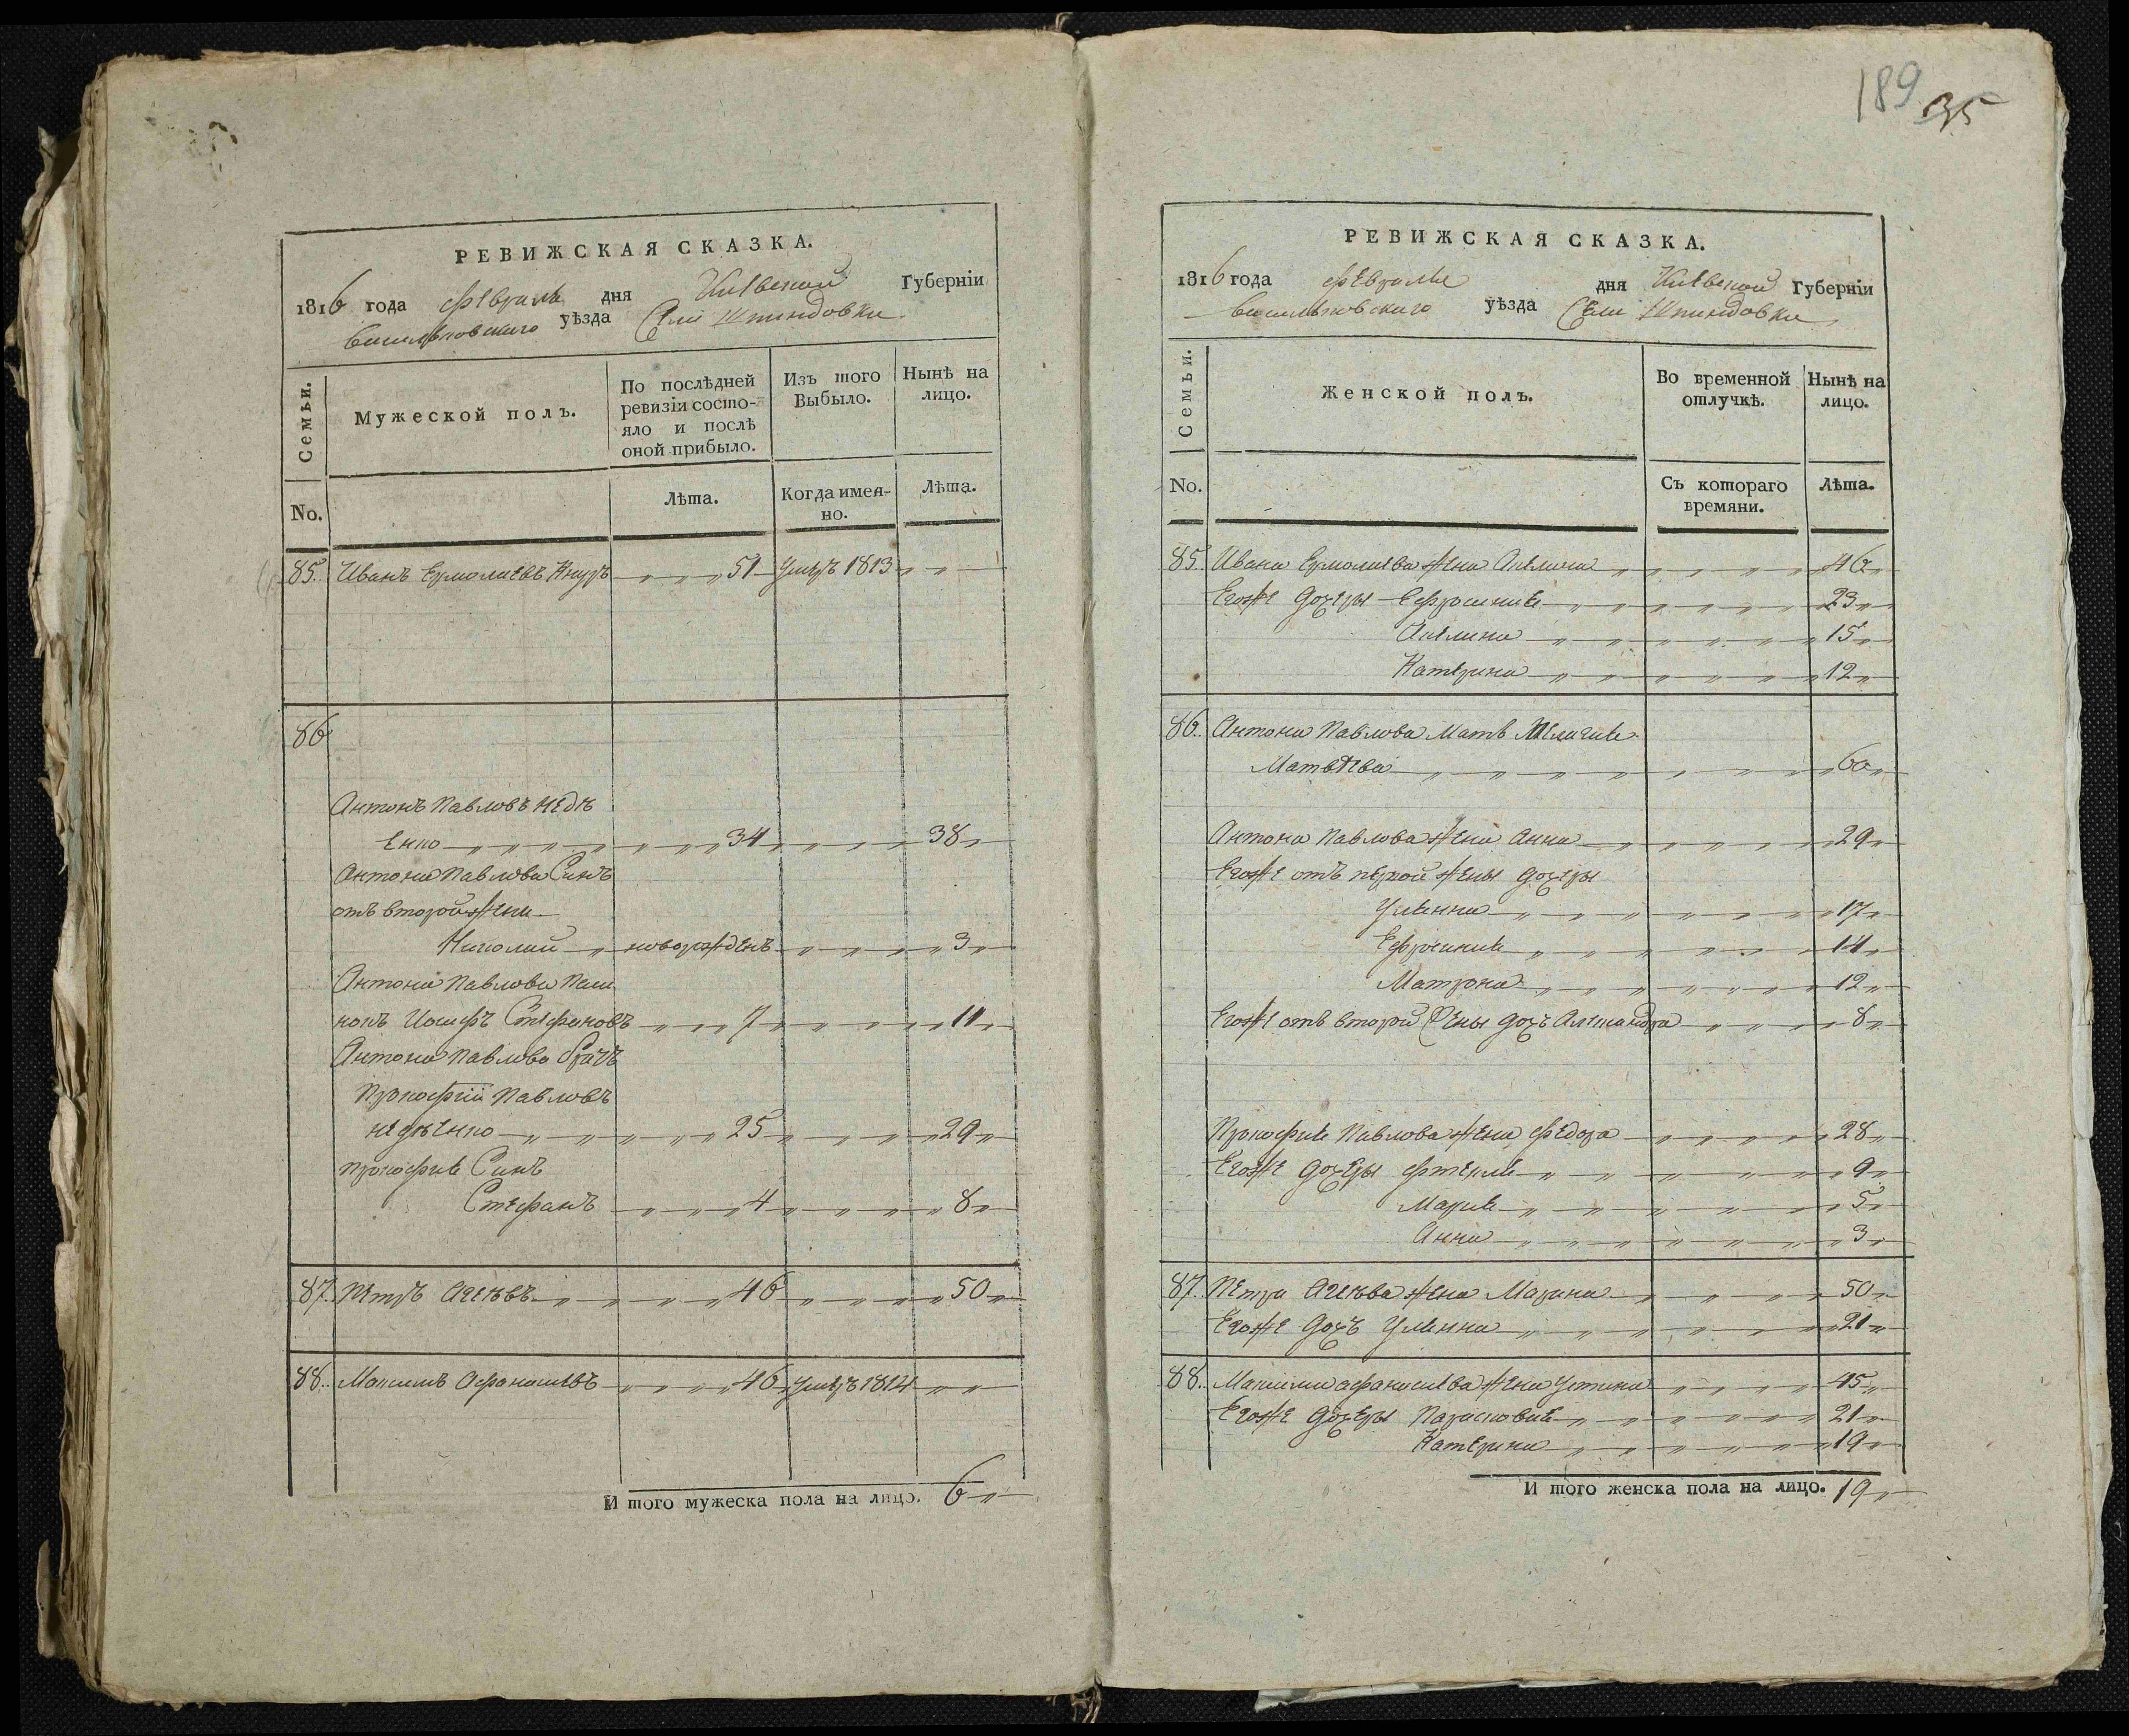 РЕВИЖСКАЯ СКАЗКА.
1816 года февраля дня Киевской Губерніи
Васильковского уѣзда Села Шпиндовки
Семьи.
Мужеской полъ.
По послѣдней ревизіи состояло и послѣ оной прибыло.
Изъ того Выбыло.
Нынѣ на лицо.
No.
Лѣта.
Когда именно.
Лѣта.
85. Иванъ Ермолаевъ Кнуръ 51 умеръ 1813
86
Антонъ Павловъ Недѣ
енко 34 38
Антона Павлова Синъ
отъ второй жены
Николай новорожденъ 3
Антона Павлова Паси
нокъ Иосифъ Стефановъ 7 11
Антона Павлова братъ
Прокофій Павловъ
недѣенко 25 29
Прокофия Синъ
Стефанъ 4 8
87. Петръ Агеѣвъ 46 50
88. Максимъ Афанасиевъ 46 умеръ 1814
И того мужеска пола на лицо. 6
189 35
РЕВИЖСКАЯ СКАЗКА.
1816 года февраля дня Киевской Губерніи
Васильковского уѣзда Села Шпиндовки
Семьи.
Женской полъ.
Во временной отлучкѣ.
Нынѣ на лицо.
No.
Съ котораго времяни.
Лѣта.
85. Ивана Ермолаева жена Акилина 46
Егоже дочеры Ефросиния 23
Акилина 15
Катерина 12
86. Антона Павлова мать Мелания
Матвѣева 60
Антона Павлова жена Анна 29
Егоже отъ первой жены дочеры
Улянна 17
Ефросиния 14
Матрона 12
Егоже отъ второй жены дочь Александра 8
Прокофия Павлова жена Федора 28
Егоже дочеры 9
Мария 5
Анна 3
87. Петра Агеѣва жена Марина 50
Егоже дочъ Улянна 21
88. Максима афанасиева жена Устина 45
Егоже дочеры Парасковия 21
Катерина 19
И того женска пола на лицо. 19